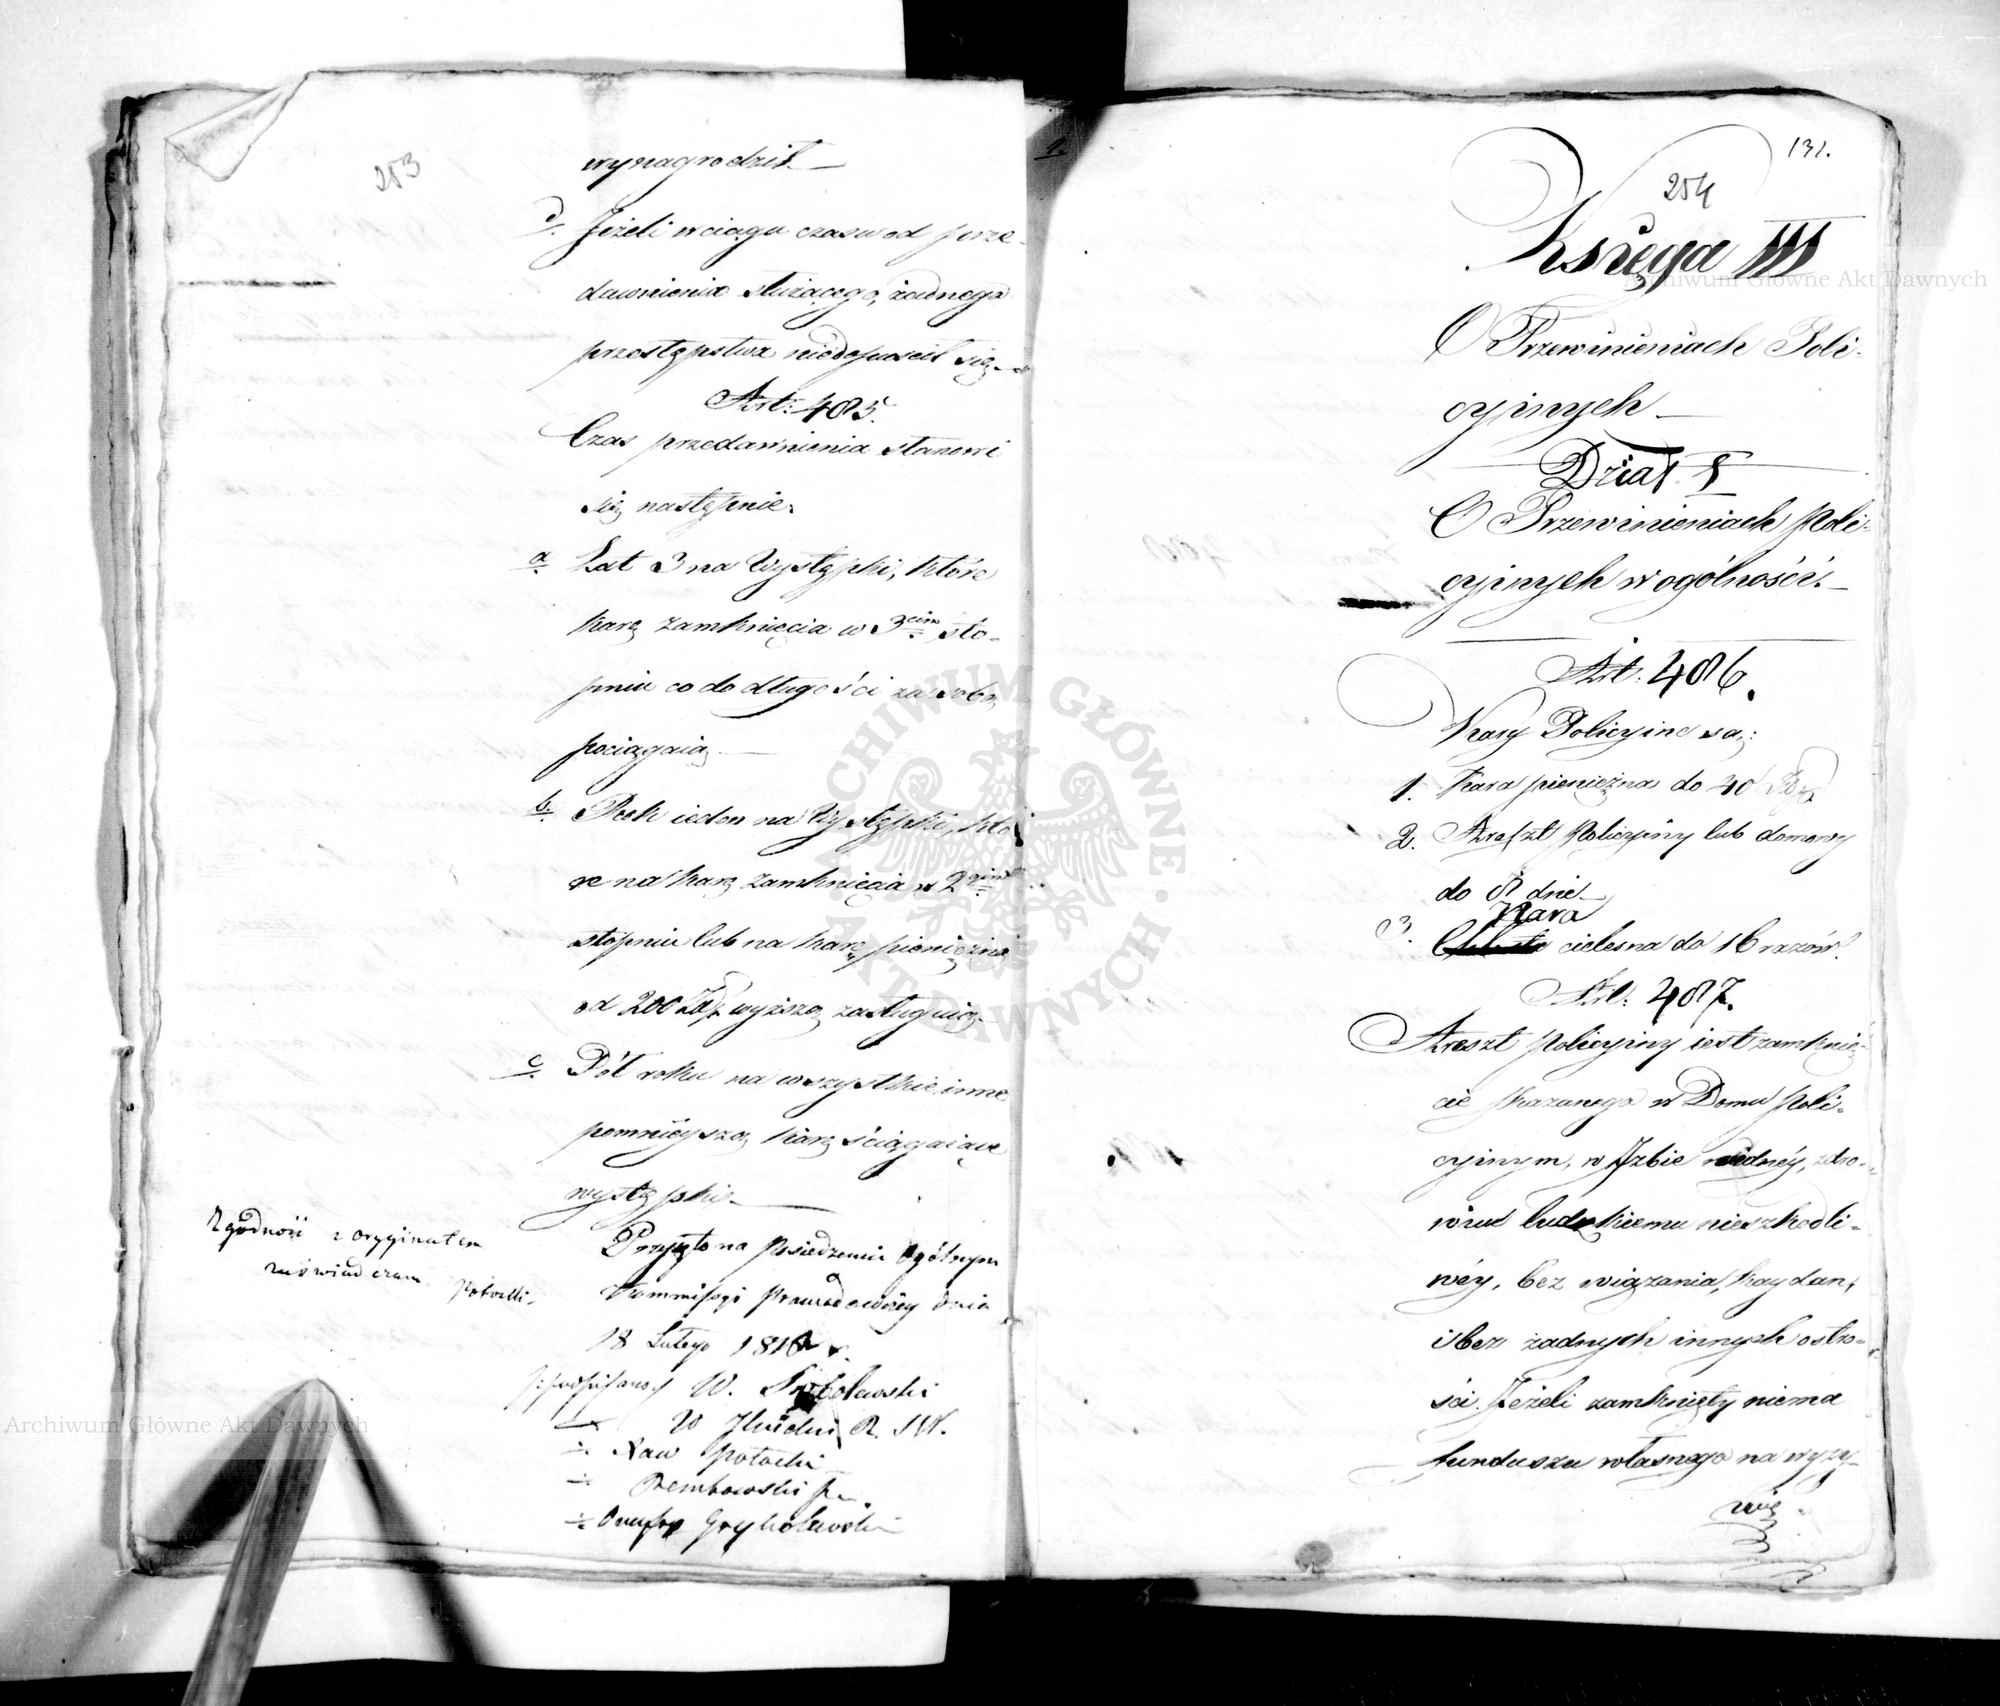 253
wynagrodził.—
d. Jeżeli w ciągu czasu od prze-
dawnienia służącego, żadnego
przestępstwa niedopuścił się.—
Art: 485.
Czas przedawnienia stanowi
się następnie.
a. Lat 3 na Występki, które
karę zamknięcia w 3cim sto-
pniu co do długości za sobą
pociągaią.—
b. Rok ieden na Występki, któ
re na karę zamknięcia w 2gim
stopniu lub na karę pieniężną
od 200 Złp wyższą zasługuią.—
c. Pół roku na wszystkie inne
pomnieyszą karę ściągaiące
występki.—
Przyięto na posiedzeniu Ogólnym
Kommissyi Prawodawczey dnia
18 Lutego 1818 r.
/:podpisano:/ W. Sobolewski
— W R. S W.
— Xaw Potocki
— Dembowski
— Onufry Grykołewski
Zgodność z oryginałem
zaświadczam
131.
254
Księga III
O Przewinieniach Poli-
cyjnych—
Dział I
O Przewinieniach Poli-
cyjnych w ogólności.—
Art: 486.
Kary Policyine są:
1. Kara pieniężna do 40 Złp
2. Areszt Policyiny lub domowy
do 8 dni—
Kara
3. cielesna do 16 razów.
Art: 487.
Areszt Policyiny iest zamknię-
cie skazanego w Domu Poli-
cyinym, w Izbie widnéy, zdro-
wiu ludzkiemu nieszkodli-
wéy, bez wiązania, kaydan,
i bez żadnych innych ostro-
ści. Jeżeli zamknięty niema
funduszu własnego na wyży-
wię
Archiwum Główne Akt Dawnych
ARCHIWUM GŁÓWNE AKT DAWNYCH
Archiwum Główne Akt Dawnych